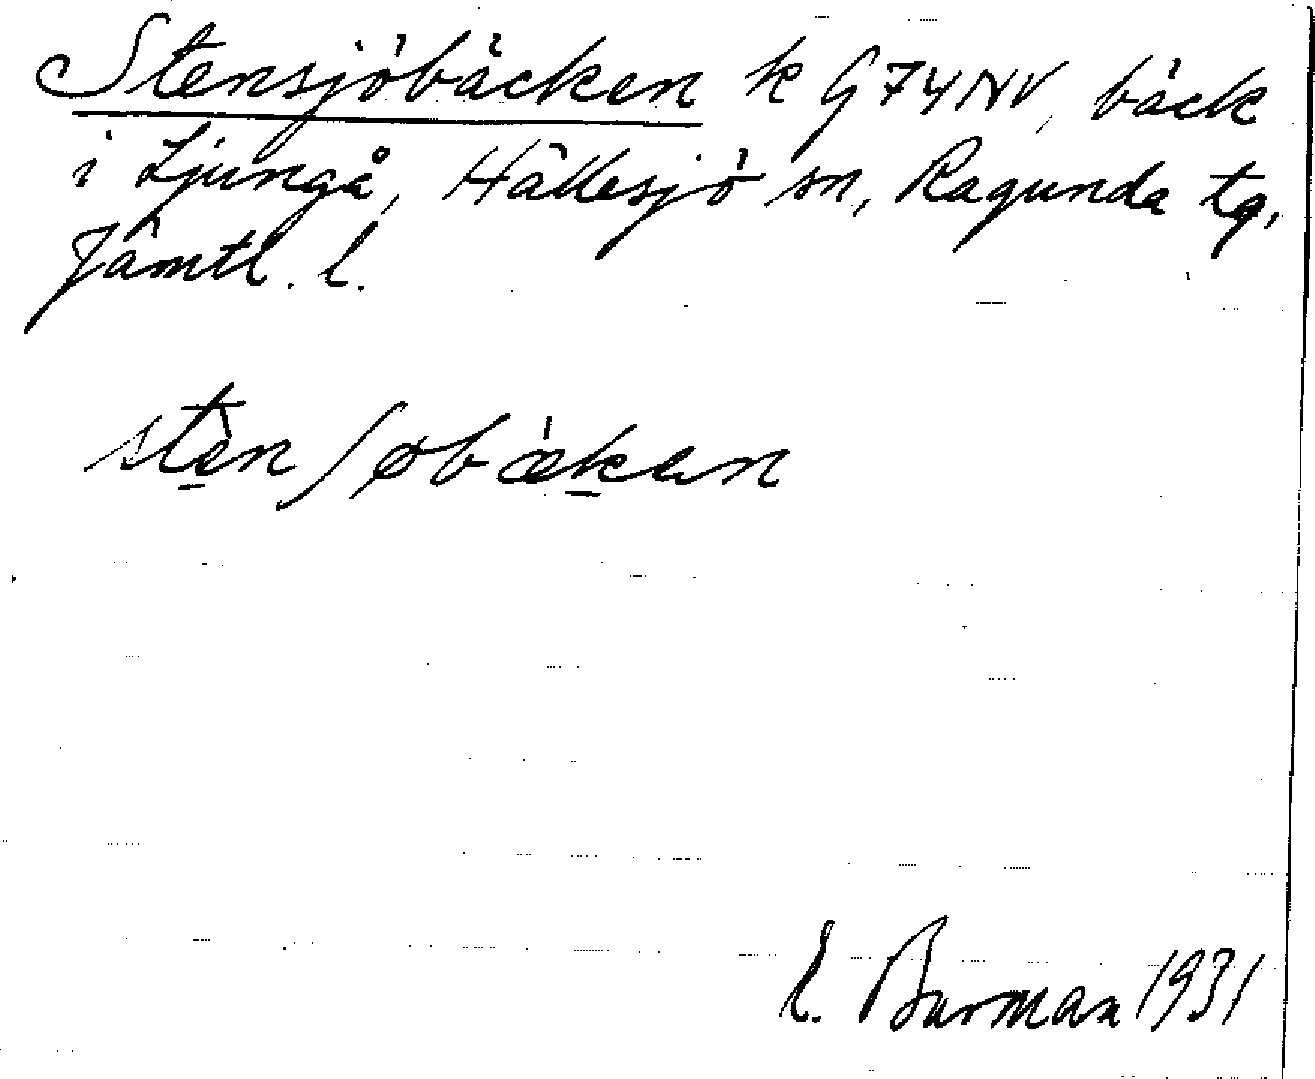 Stensjöbäcken k G74NV, bäck
i Ljungå, Hällesjö sn, Ragunda tg,
Jämtl. l.
stèn ʃøbækan
E. Burman 1931